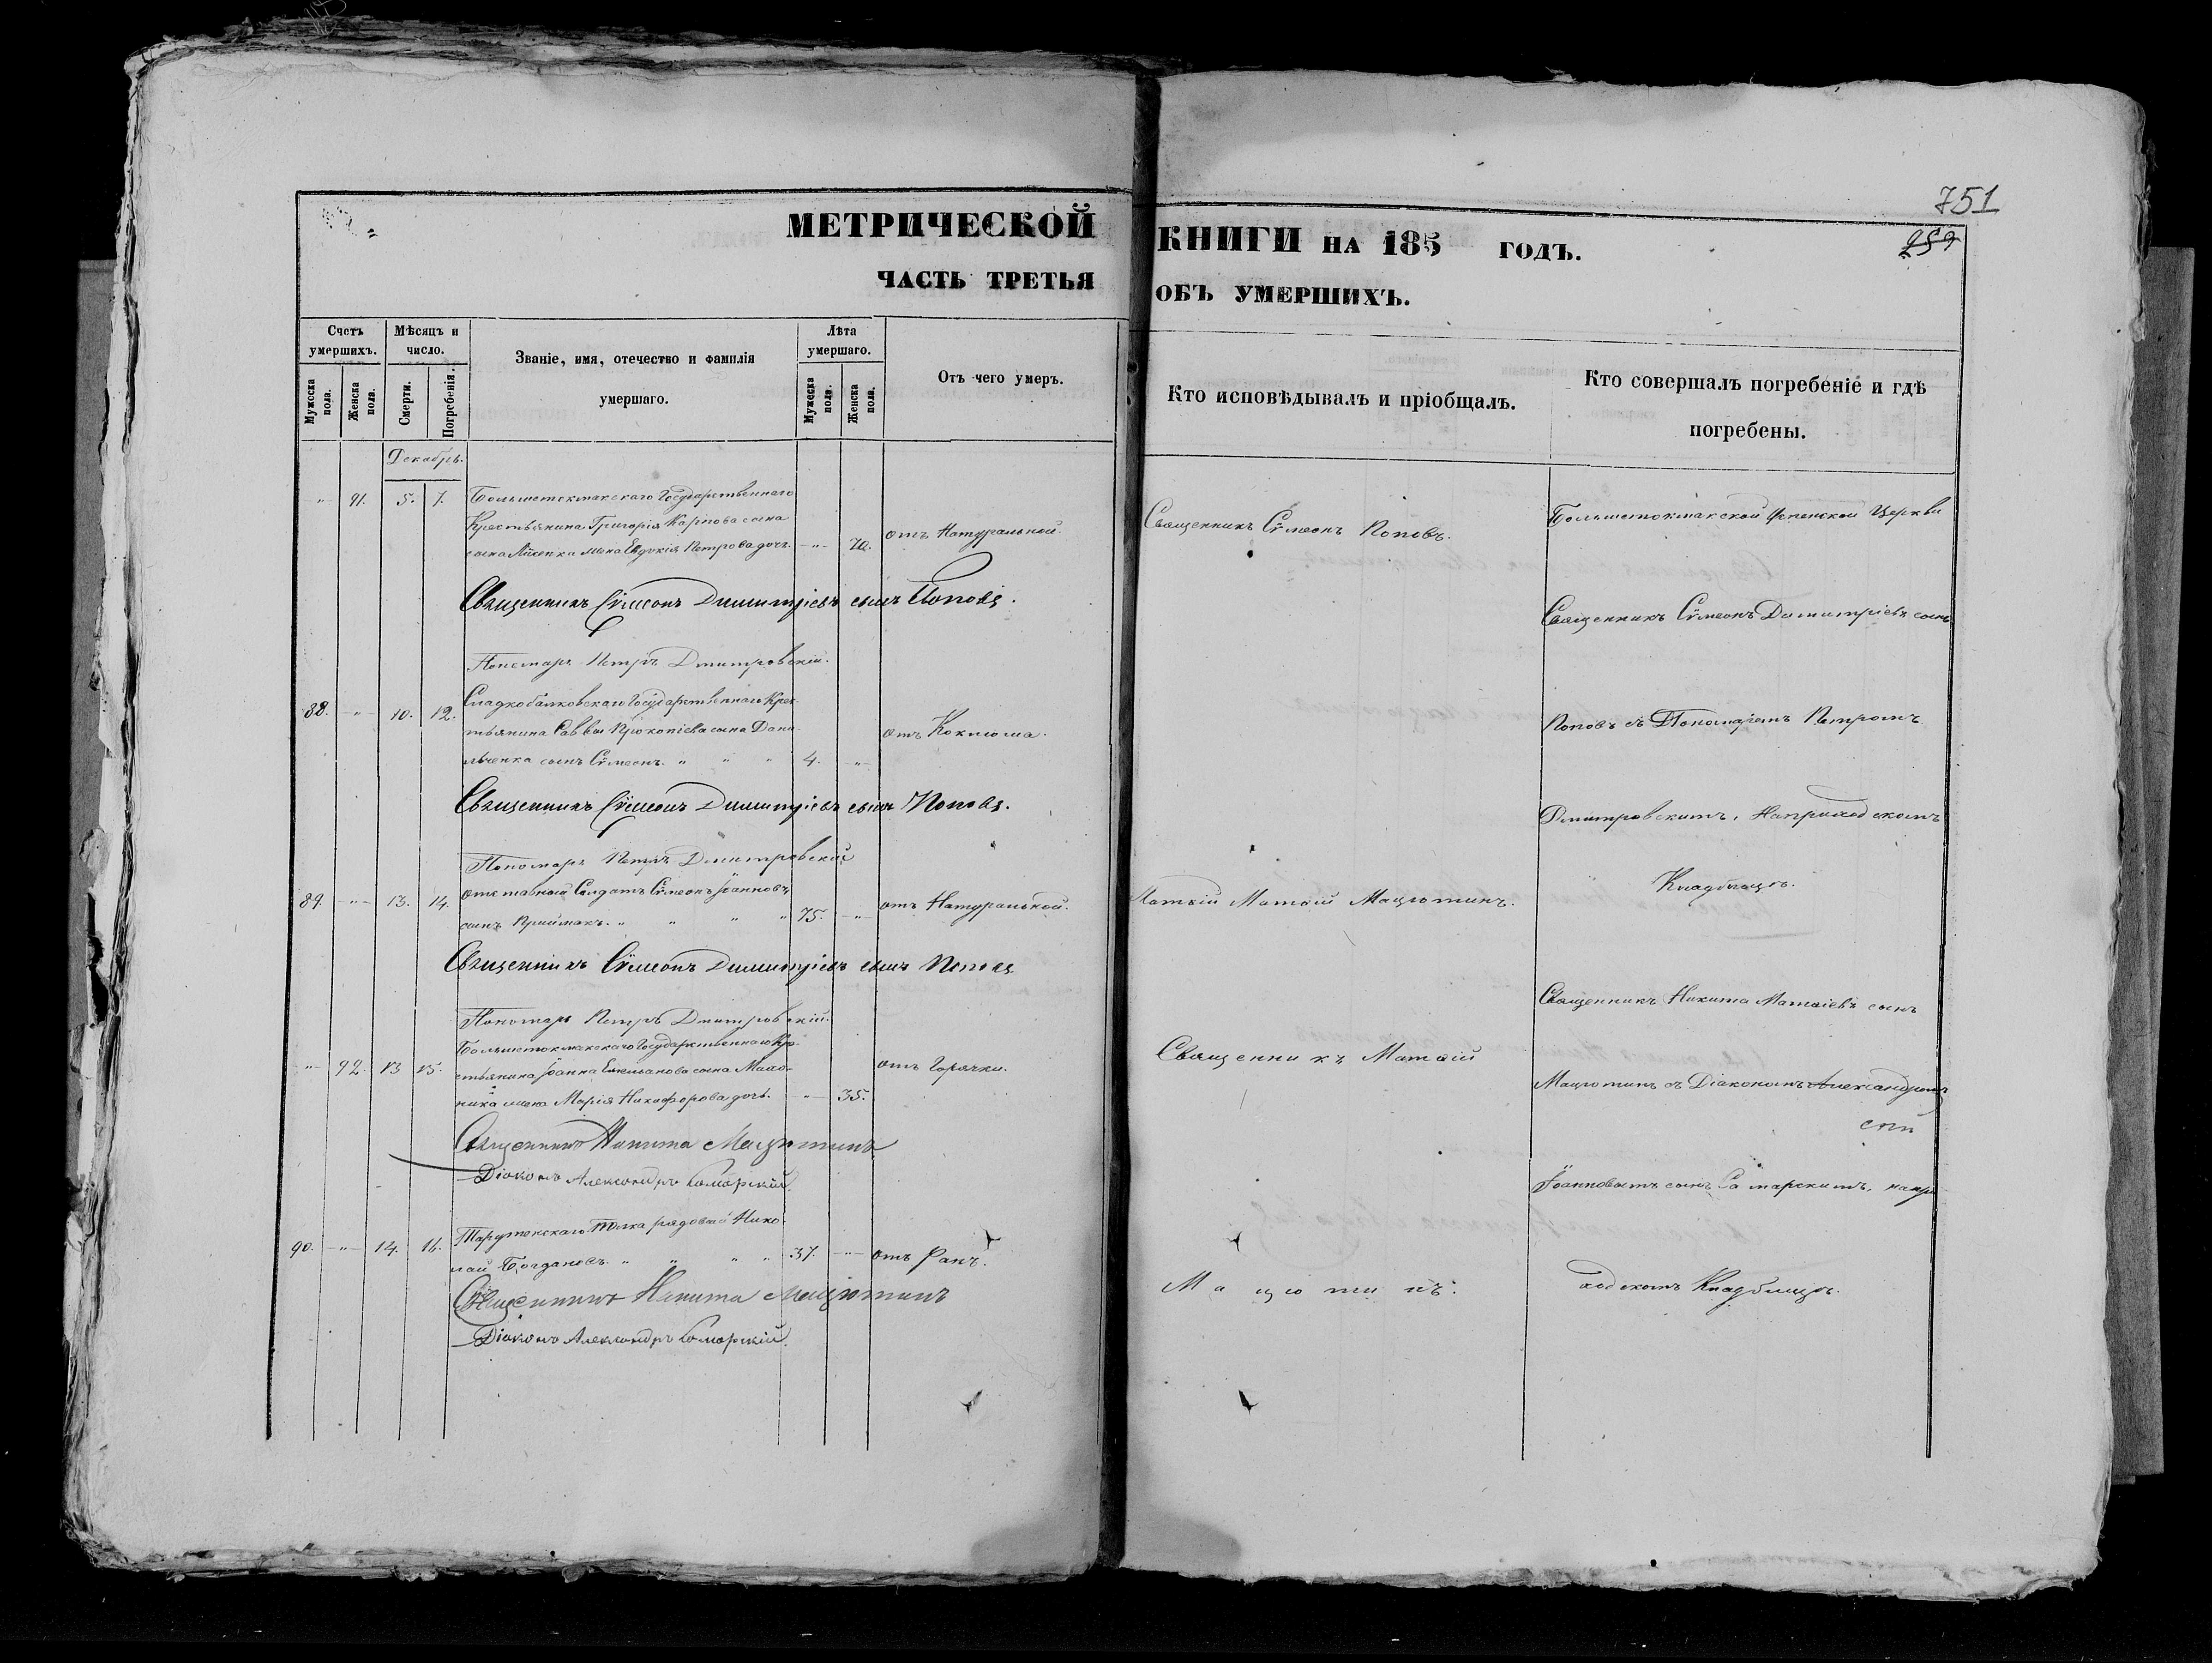 751
259
МЕТРИЧЕСКОЙ КНИГИ НА 185 ГОДЪ.
ЧАСТЬ ТРЕТЬЯ ОБЪ УМЕРШИХЪ.
Счетъ умершихъ.
Мужеска пола.
Женска пола.
Мѣсяцъ и число.
Смерти.
Погребенія.
Званіе, имя, отечество и фамилія умершаго.
Лѣта умершаго.
Мужеска пола.
Женска пола.
Отъ чего умеръ.
Кто исповѣдывалъ и пріобщалъ.
Кто совершалъ погребеніе и гдѣ погребены.
Декабрь.
" 91. 5. 7. Большетокмакскаго Государственнаго
Крестьянина Григорія Карпова сына
жена Евдокія Петрова дочь. " 70. отъ Натуральной.
Священникъ Сѵмеонъ Димитріевъ сынъ Поповъ.
Пономарь Петръ Дмитровскій.
88. " 10. 12. Сладкобалковскаго Государственнаго Крес
тьянина Саввы Прокопіева сына Дани
льченка сынъ Сѵмеонъ. " " " 4. " отъ Коклюша.
Священникъ Сѵмеонъ Димитріевъ сынъ Поповъ.
Пономарь Петръ Дмитровскій
89. " 13. 14. отставной Солдатъ Сѵмеонъ Іоанновъ
сынъ Приймакъ. " " " " 75. " отъ Натуральной.
Священникъ Сѵмеонъ Димитріевъ сынъ Поповъ
Пономарь Петръ Дмитровскій.
" 92. 13 15. Большетокмакскаго Государственнаго Кре
стьянина Іоанна Емельянова сына
жена Марія Никифорова дочь. " 35. отъ Горячки.
Священникъ Никита Мацютинъ
Діаконъ Александръ Самарскій.
90. " 14. 16. Тарутенскаго Полка рядовой Нико
лай Богдановъ. " " " " 37. " отъ Ранъ.
Священникъ Никита Мацютинъ
Діаконъ Александръ Самарскій.
Священникъ Сѵмеонъ Поповъ.
Матѳій Мацютинъ.
Священникъ Матѳій
Мацютинъ.
Большетокмакской Успенской Церкви
Священникъ Сѵмеонъ Димитріевъ сынъ
Поповъ съ Пономаремъ Петромъ
Дмитровскимъ, На приходскомъ
Кладбищѣ.
Священникъ Никита Матѳіевъ сынъ
Мацютинъ съ Діакономъ Александромъ
Іоанновымъ сынъ Самарскимъ, на при
ходскомъ Кладбищѣ.